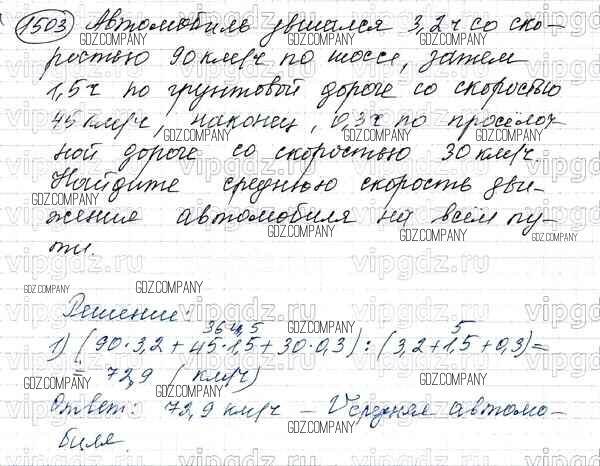 1503 Автомобиль двигался 3,2 ч со ско-
ростью 90 км/ч по шоссе, затем
1,5 ч по грунтовой дороге со скоростью
45 км/ч, наконец, 0,3 ч по просёлоч
ной дороге со скоростью 30 км/ч.
Найдите среднюю скорость дви-
жения автомобиля на всём пу-
ти.
Решение:
364,5 5
1) (90·3,2 + 45·1,5 + 30·0,3) : (3,2+1,5+0,3)=
= 72,9 (км/ч)
Ответ: 72,9 км/ч – V средняя автомо-
биля.
GDZ.COMPANY
vipgdz.ru